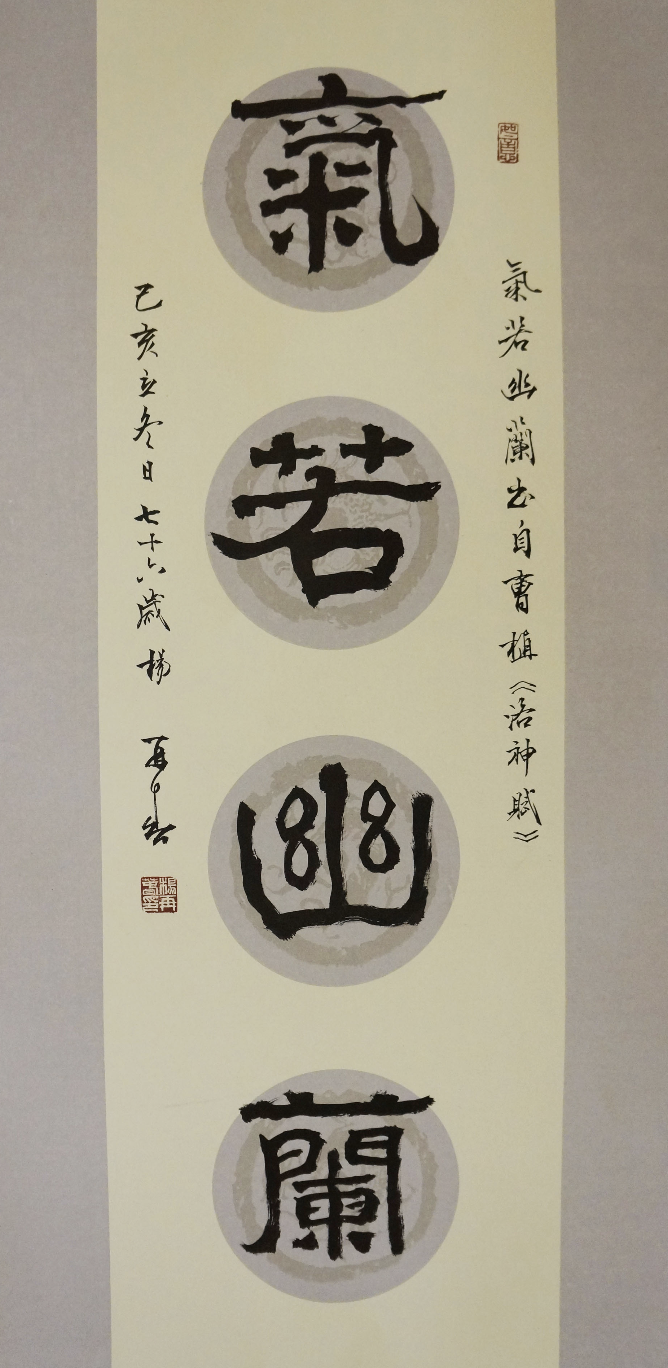 氣若幽蘭出自曹植《洛神賦》
氣若幽蘭
己亥立冬日七十六歲楊再春
楊再春印